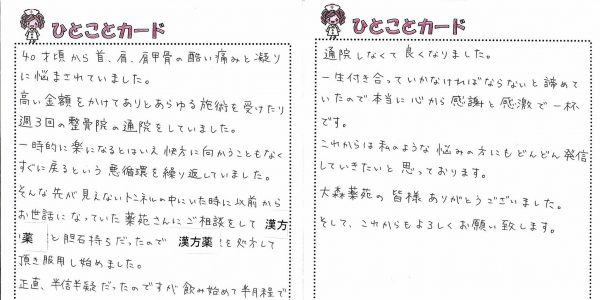 ひとことカード
40才頃から首、肩、肩甲骨の酷い痛みと凝り
に悩まされていました。
高い金額をかけてありとあらゆる施術を受けたり
週3回の整骨院の通院をしていました。
一時的に楽になるとはいえ快方に向かうこともなく
すぐに戻るという悪循環を繰り返していました。
そんな先が見えないトンネルの中にいた時に以前から
お世話になっていた薬苑さんにご相談をして 漢方
薬 と胆石持ちだったので 漢方薬 を処方して
頂き服用し始めました。
正直、半信半疑だったのですが飲み始めて半月程で
ひとことカード
通院しなくて良くなりました。
一生付き合っていかなければならないと諦めて
いたので本当に心から感謝と感激で一杯
です。
これからは私のような悩みの方にもどんどん発信
していきたいと思っております。
大森薬苑の皆様ありがとうございました。
そして、これからもよろしくお願い致します。